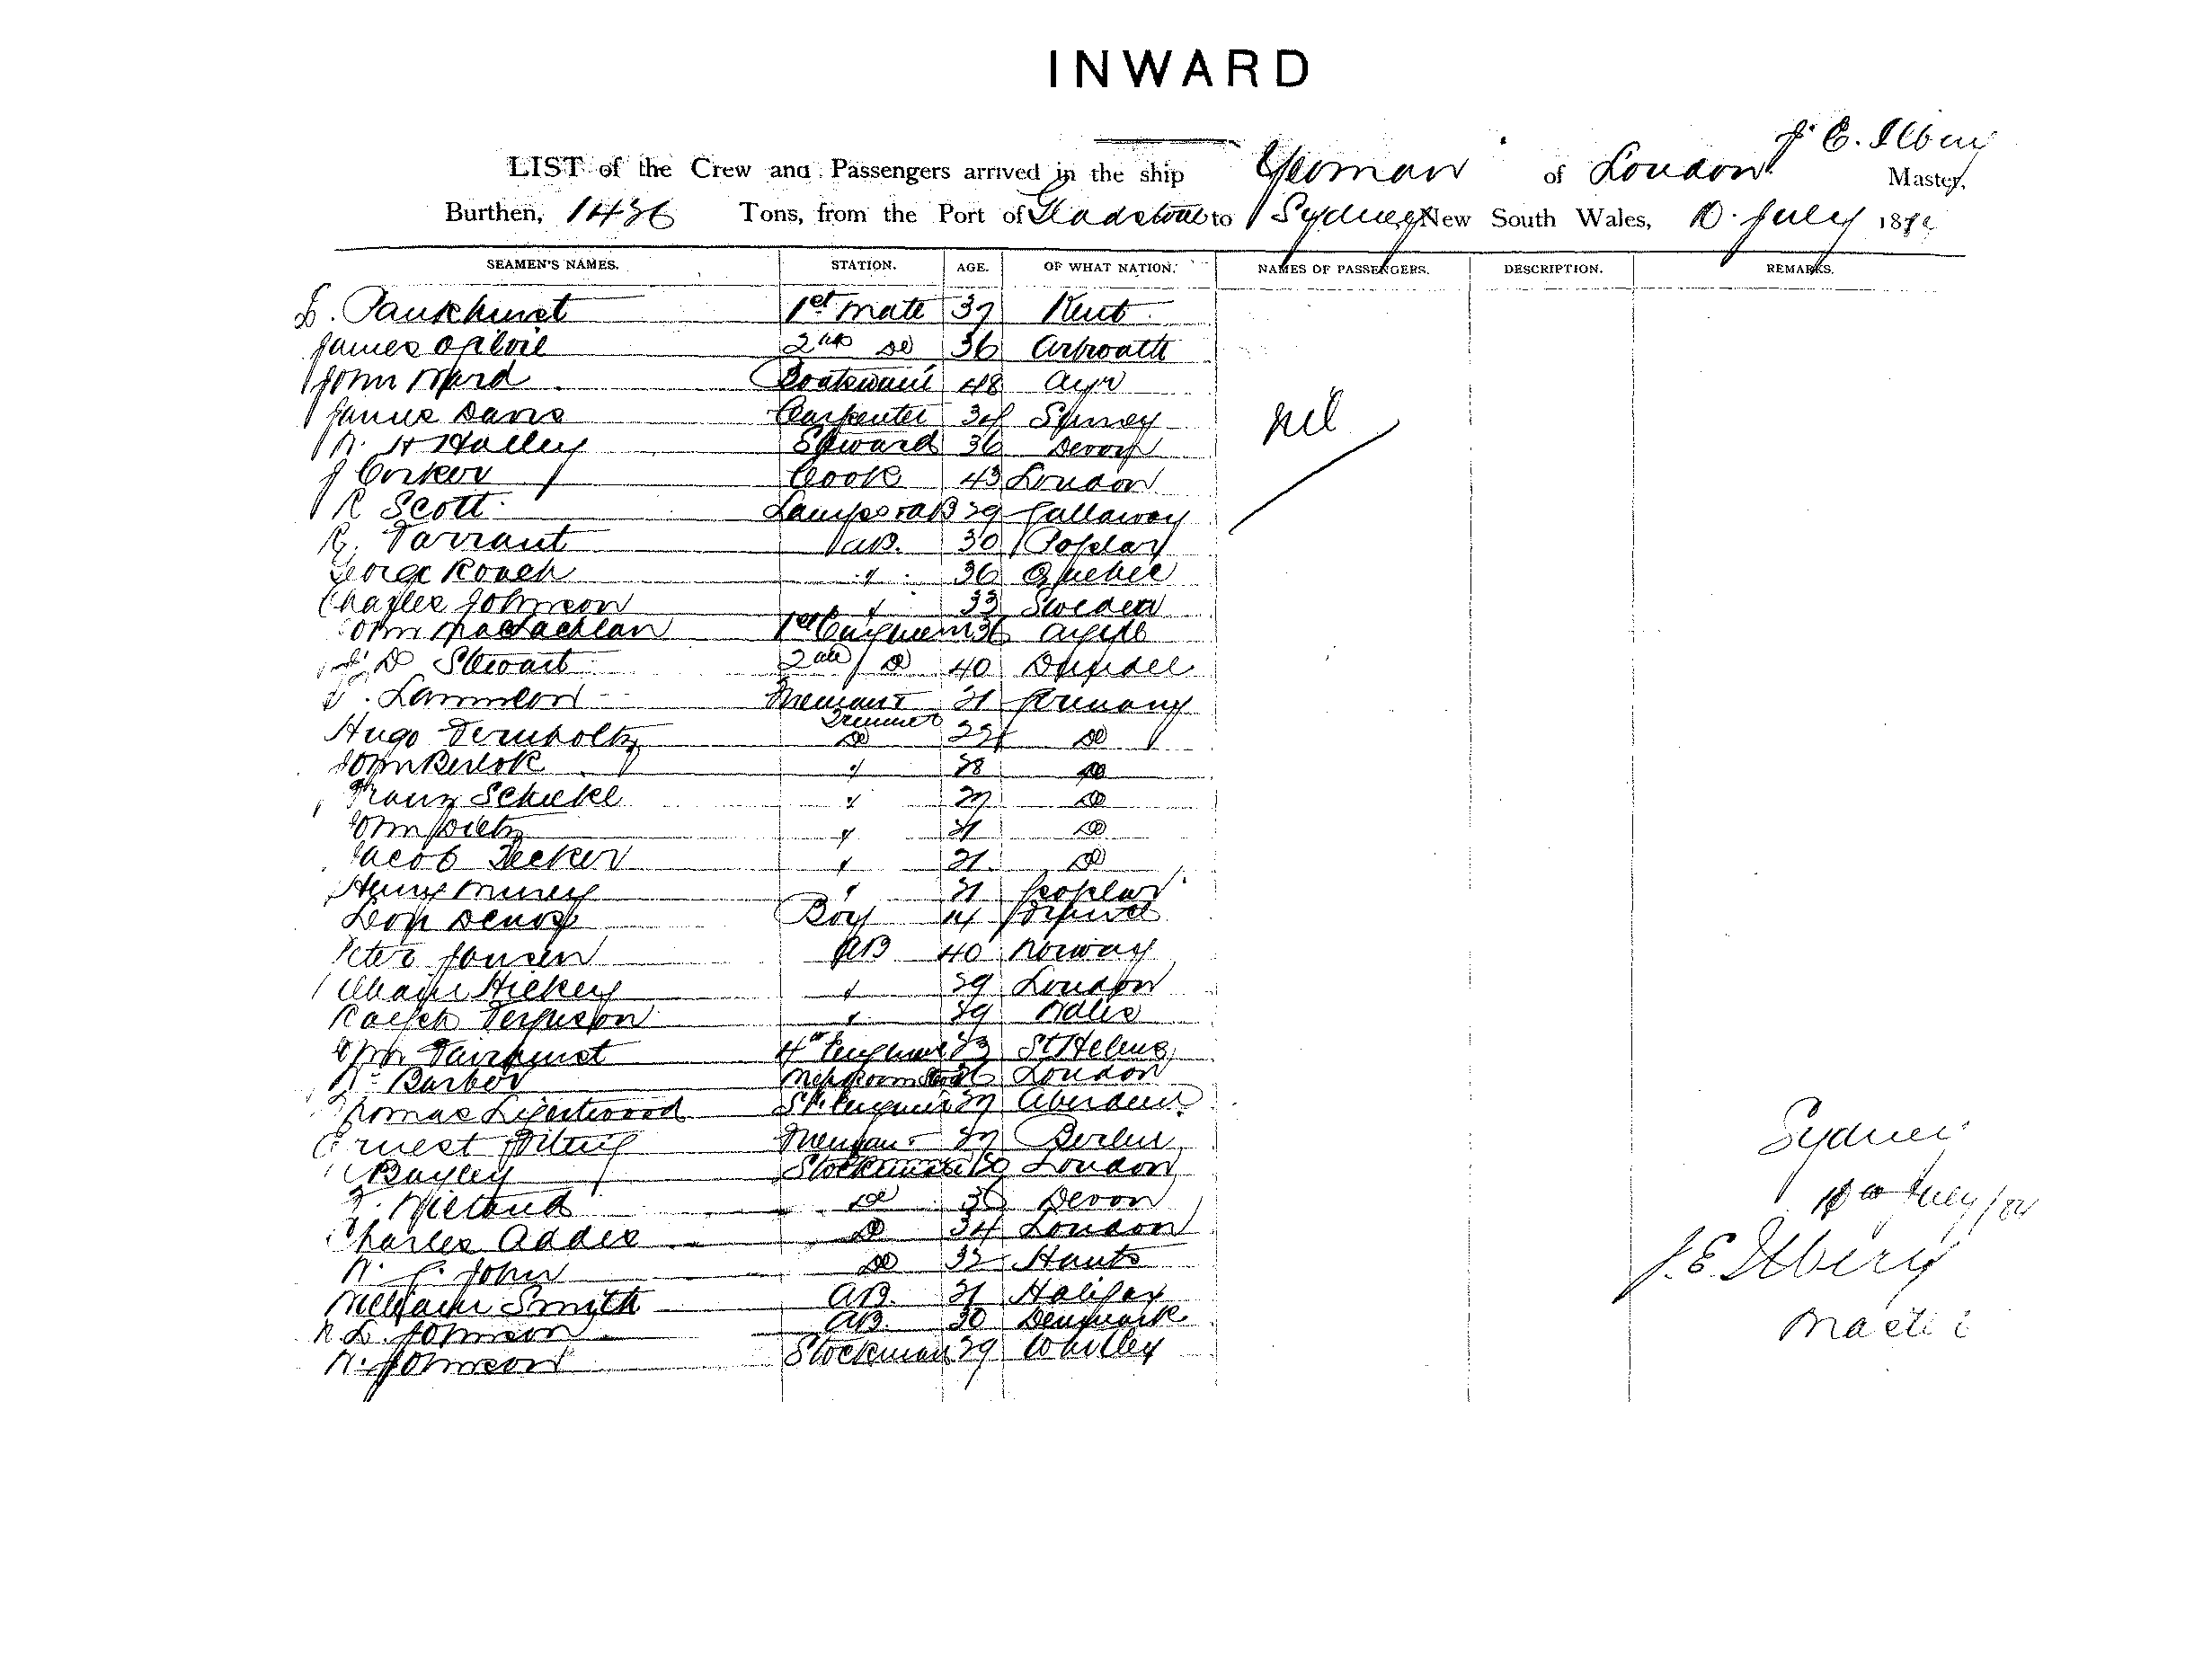 INWARD
J. E. Ilbery
LIST of the Crew and Passengers arrived in the ship Yeoman of London Master,
Burthen, 1436 Tons, from the Port of Gladstone to Sydney New South Wales, 10 July 18
SEAMEN'S NAMES. STATION. AGE. OF WHAT NATION. NAMES OF PASSENGERS. DESCRIPTION. REMARKS.
Pankhurst 1st Mate 37 Kent
James Ogilvie 2nd Do 36 Arbroath
John Ward Boatswain 48 Ayr
James Davis Carpenter 34 Surrey
nil
W. H Halley Steward 36 Devon
J Corker Cook 43 London
R Scott Lamps &AB 29 Gallaway
Tarrant AB. 30 Poplar
George Roach " 36 Quebec
Charles Johnson " 33 Sweden
John MacLachlan 1st Engineer 36 Argyle
J. D Stewart 2nd Do 40 Dundee
Fireman & 21 Germany
Trimmer
Hugo Do Do
John " 28 Do
Franz " 27 Do
John Dietz " 21 Do
Jacob Decker " 21 Do
Henry " 21 Poplar
Leon Boy 14
Peter Jansen AB 40 Norway
William Hickey " 29 London
Ralph Ferguson " 39 Wales
John Fairhurst 4th Engineer 23 St Helens
W. Barber Messroom Stwd 26 London
Thomas Lightwood 3rd Engineer 27 Aberdeen
Ernest Fireman 27 Berlin
Bayley Stockman London
36 Devon
Sydney
10th July
Charles Addie Do 34 London
W. John Do 32 Hants
J. E. Ilbery
William Smith AB. 21 Halifax
Johnson AB. 30 Denmark
Master
W. Johnson Stockman 29